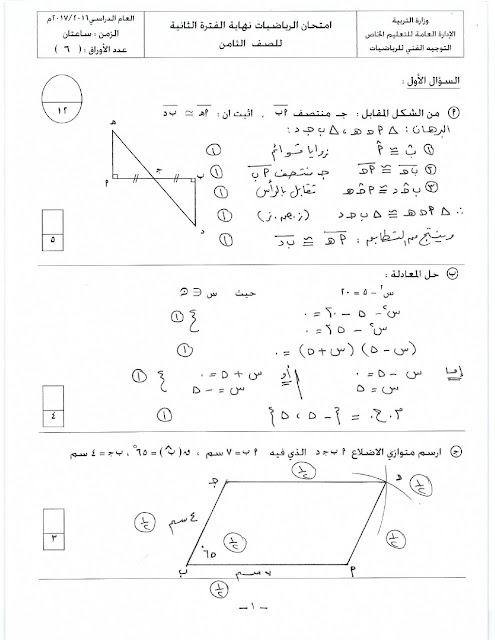 وزارة التربية
الإدارة العامة للتعليم الخاص
التوجيه الفني للرياضيات
امتحان الرياضيات نهاية الفترة الثانية
للصف الثامن
العام الدراسي ٢٠١٦/٢٠١٧م
الزمن : ساعتان
عدد الأوراق : ( ٦ )
السؤال الأول :
١٢
أ من الشكل المقابل : جـ منتصف أب ، اثبت أن : أهـ ≅ ب د
البرهان : △ أ جـ هـ ، △ ب جـ د :
① ب̂ ≅ أ̂ زوايا قوائم ①
② ب جـ ≅ أ جـ جـ منتصف أب ①
③ ب جـ د ≅ أ جـ هـ تقابل بالرأس ①
∴ △ أ جـ هـ ≅ △ ب جـ د (ز.ض.ز) ①
وينتج من التطابق : أهـ ≅ ب د ①
هـ
جـ
ب
أ
د
٥
ب حل المعادلة :
س² - ٥ = ٢٠ حيث س ∈ ن
س² - ٥ - ٢٠ = ٠
س² - ٢٥ = ٠ ①
(س - ٥) (س + ٥) = ٠ ①
إما س - ٥ = ٠ أو س + ٥ = ٠
س = ٥ س = -٥ ①
م.ح = {-٥ ، ٥} ①
٤
جـ ارسم متوازي الاضلاع أ ب جـ د الذي فيه أب = ٧ سم ، ن(ب̂) = ٦٥° ، ب جـ = ٤ سم
½
جـ
د
½
½
٤ سم
٦٥°
½
½
ب
٧ سم
أ
½
٣
- ١ -